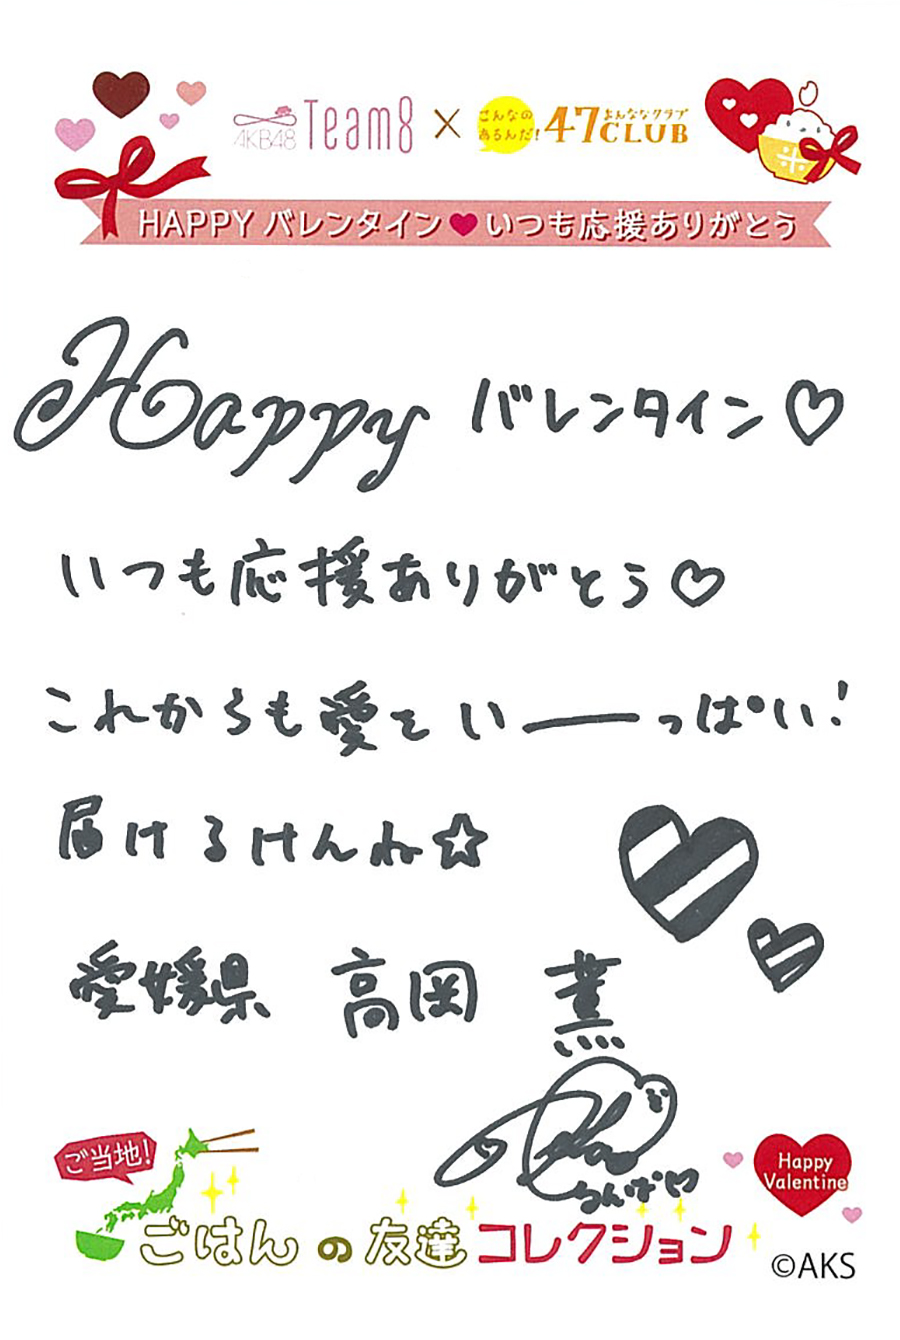 AKB48 Team8 × こんなのあるんだ! 47CLUB よんななクラブ
HAPPY バレンタイン♥いつも応援ありがとう
Happy バレンタイン♡
いつも応援ありがとう♡
これからも愛をいーーっぱい!
届けるけんね☆
愛媛県 高岡 薫
ご当地!
Happy
Valentine
ごはんの友達コレクション
©AKS